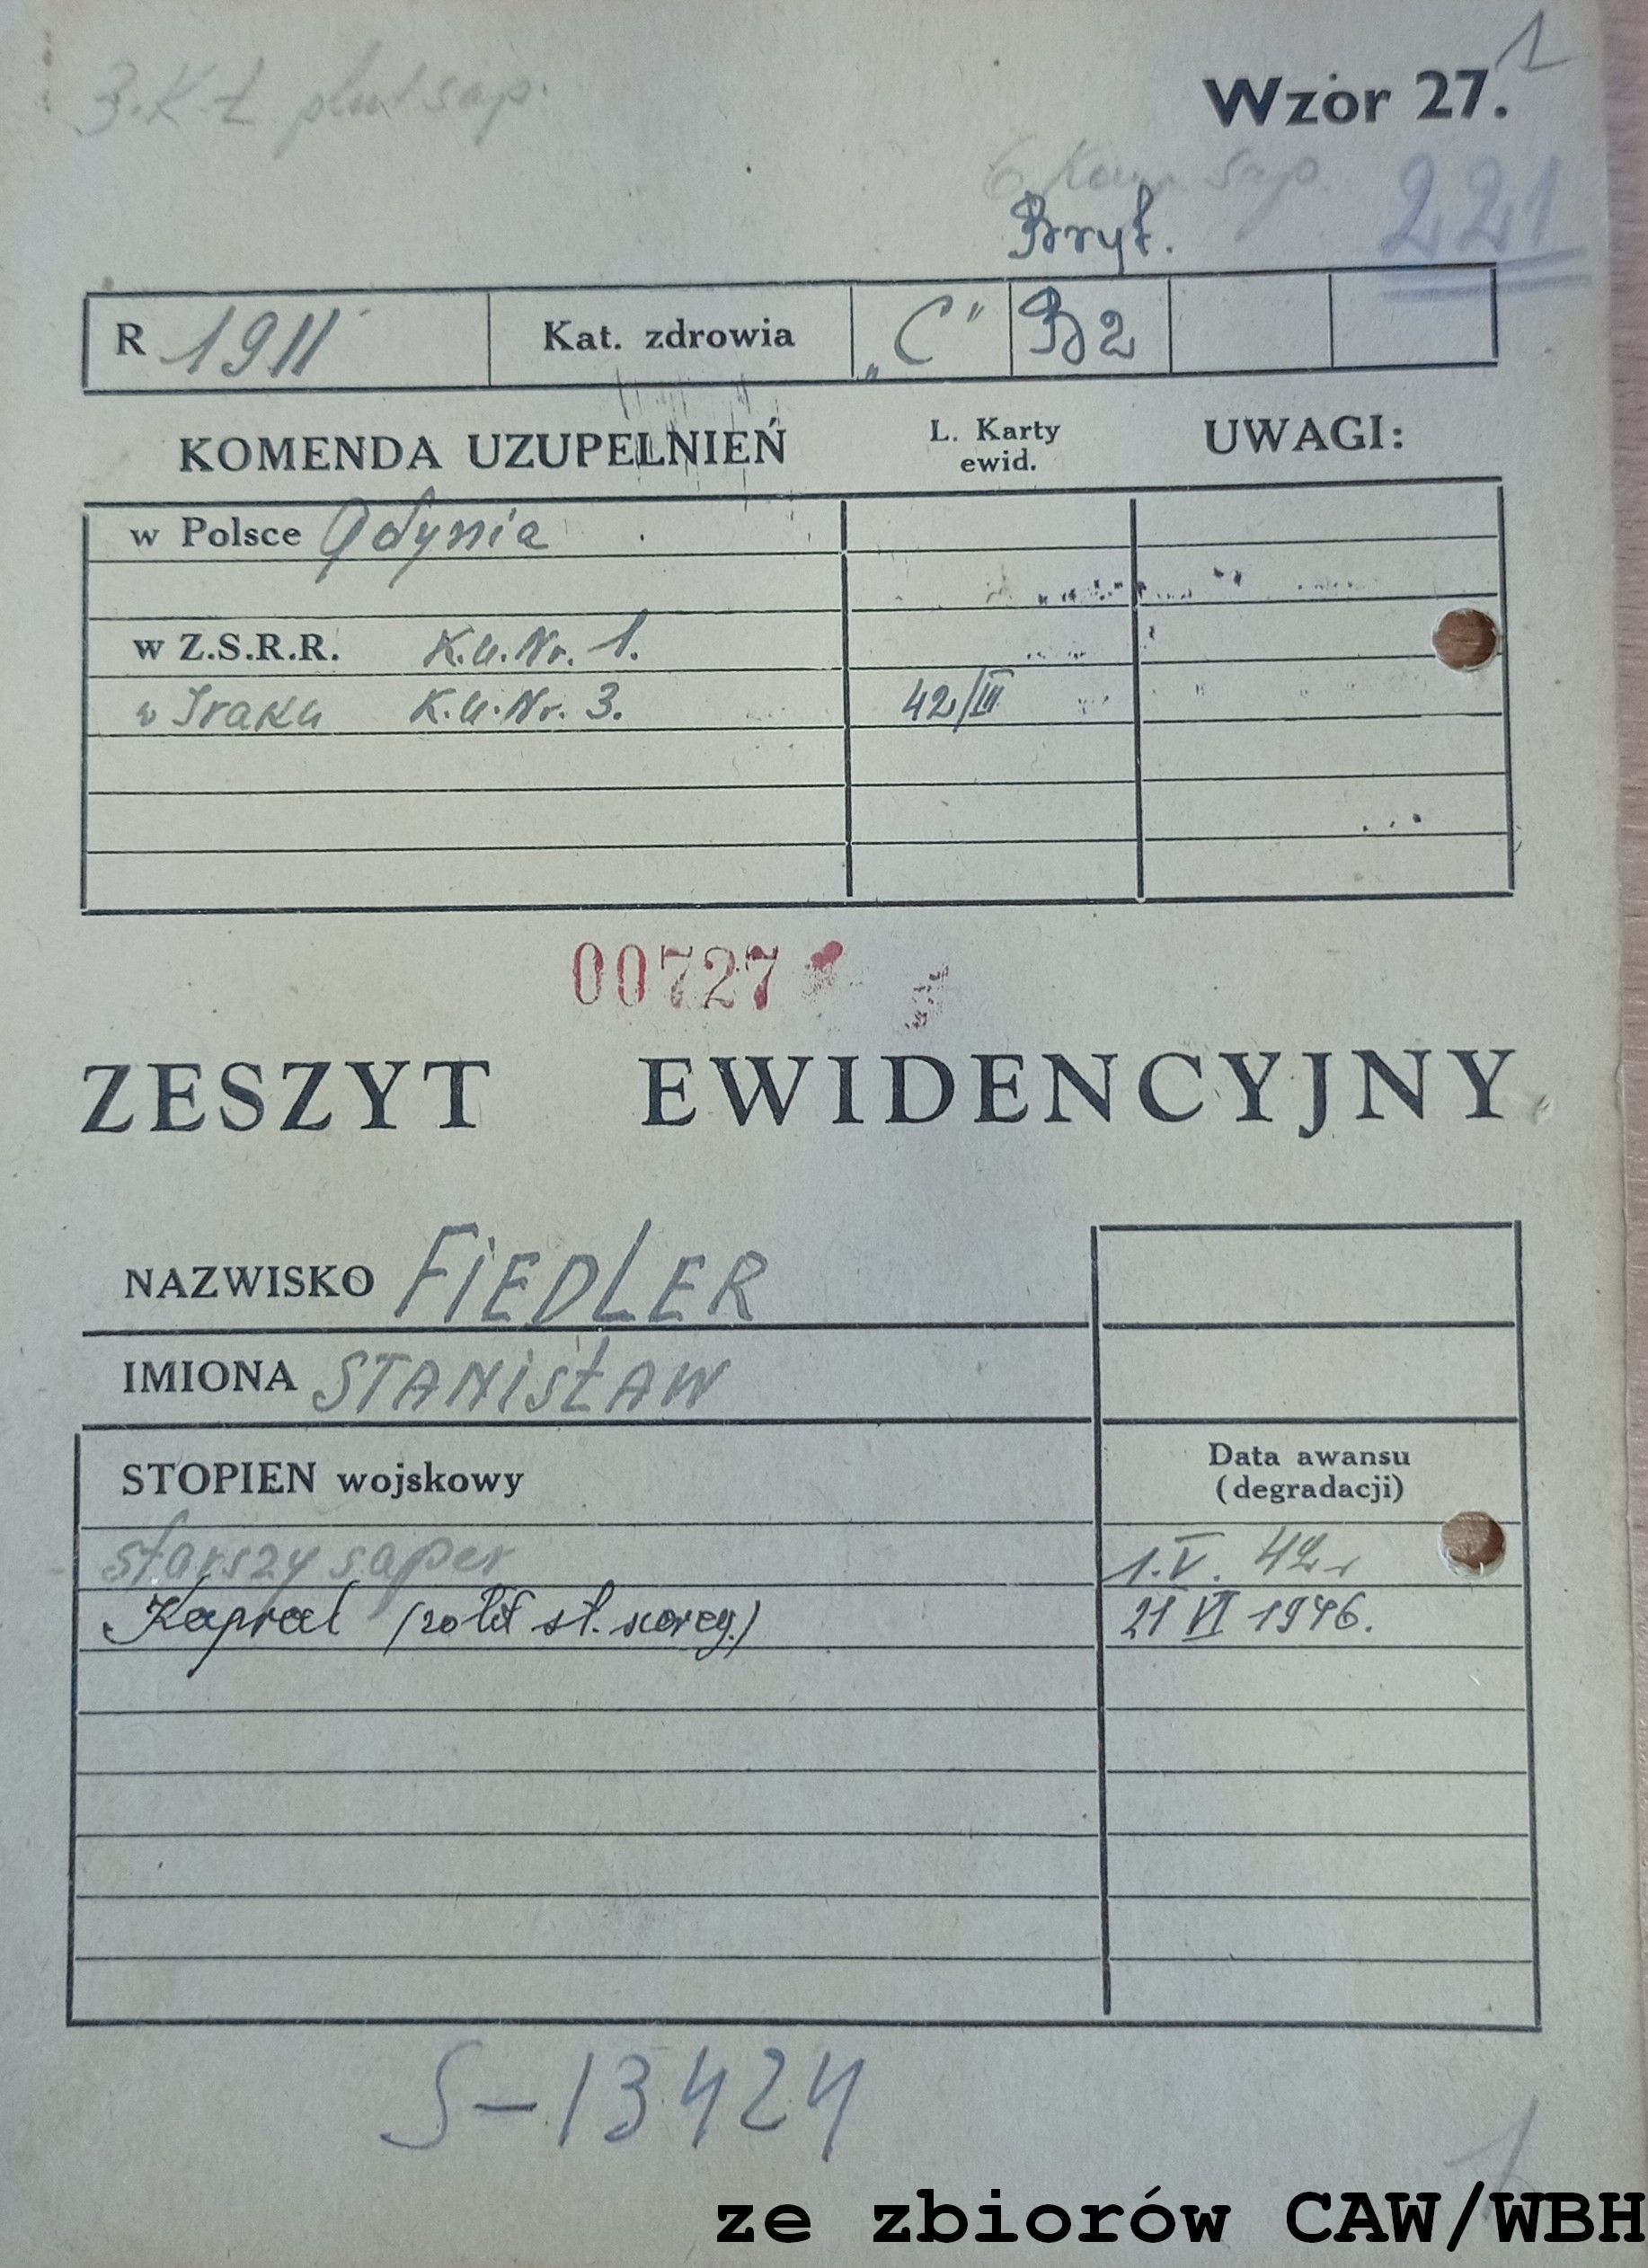 1
3.K.Ł. plut sap.
Wzór 27.
6 Komp. Sap.
Bryt.
221
R 1911 Kat. zdrowia „C" B2
KOMENDA UZUPEŁNIEŃ L. Karty ewid. UWAGI:
w Polsce Gdynia
w Z.S.R.R. K.U.Nr. 1.
w Iraku K.U.Nr. 3. 42/III
00727
ZESZYT EWIDENCYJNY
NAZWISKO FIEDLER
IMIONA STANISŁAW
STOPIEN wojskowy Data awansu (degradacji)
starszy saper 1.V. 42r
Kapral 21 VI 1946.
S-13424
1
ze zbiorów CAW/WBH